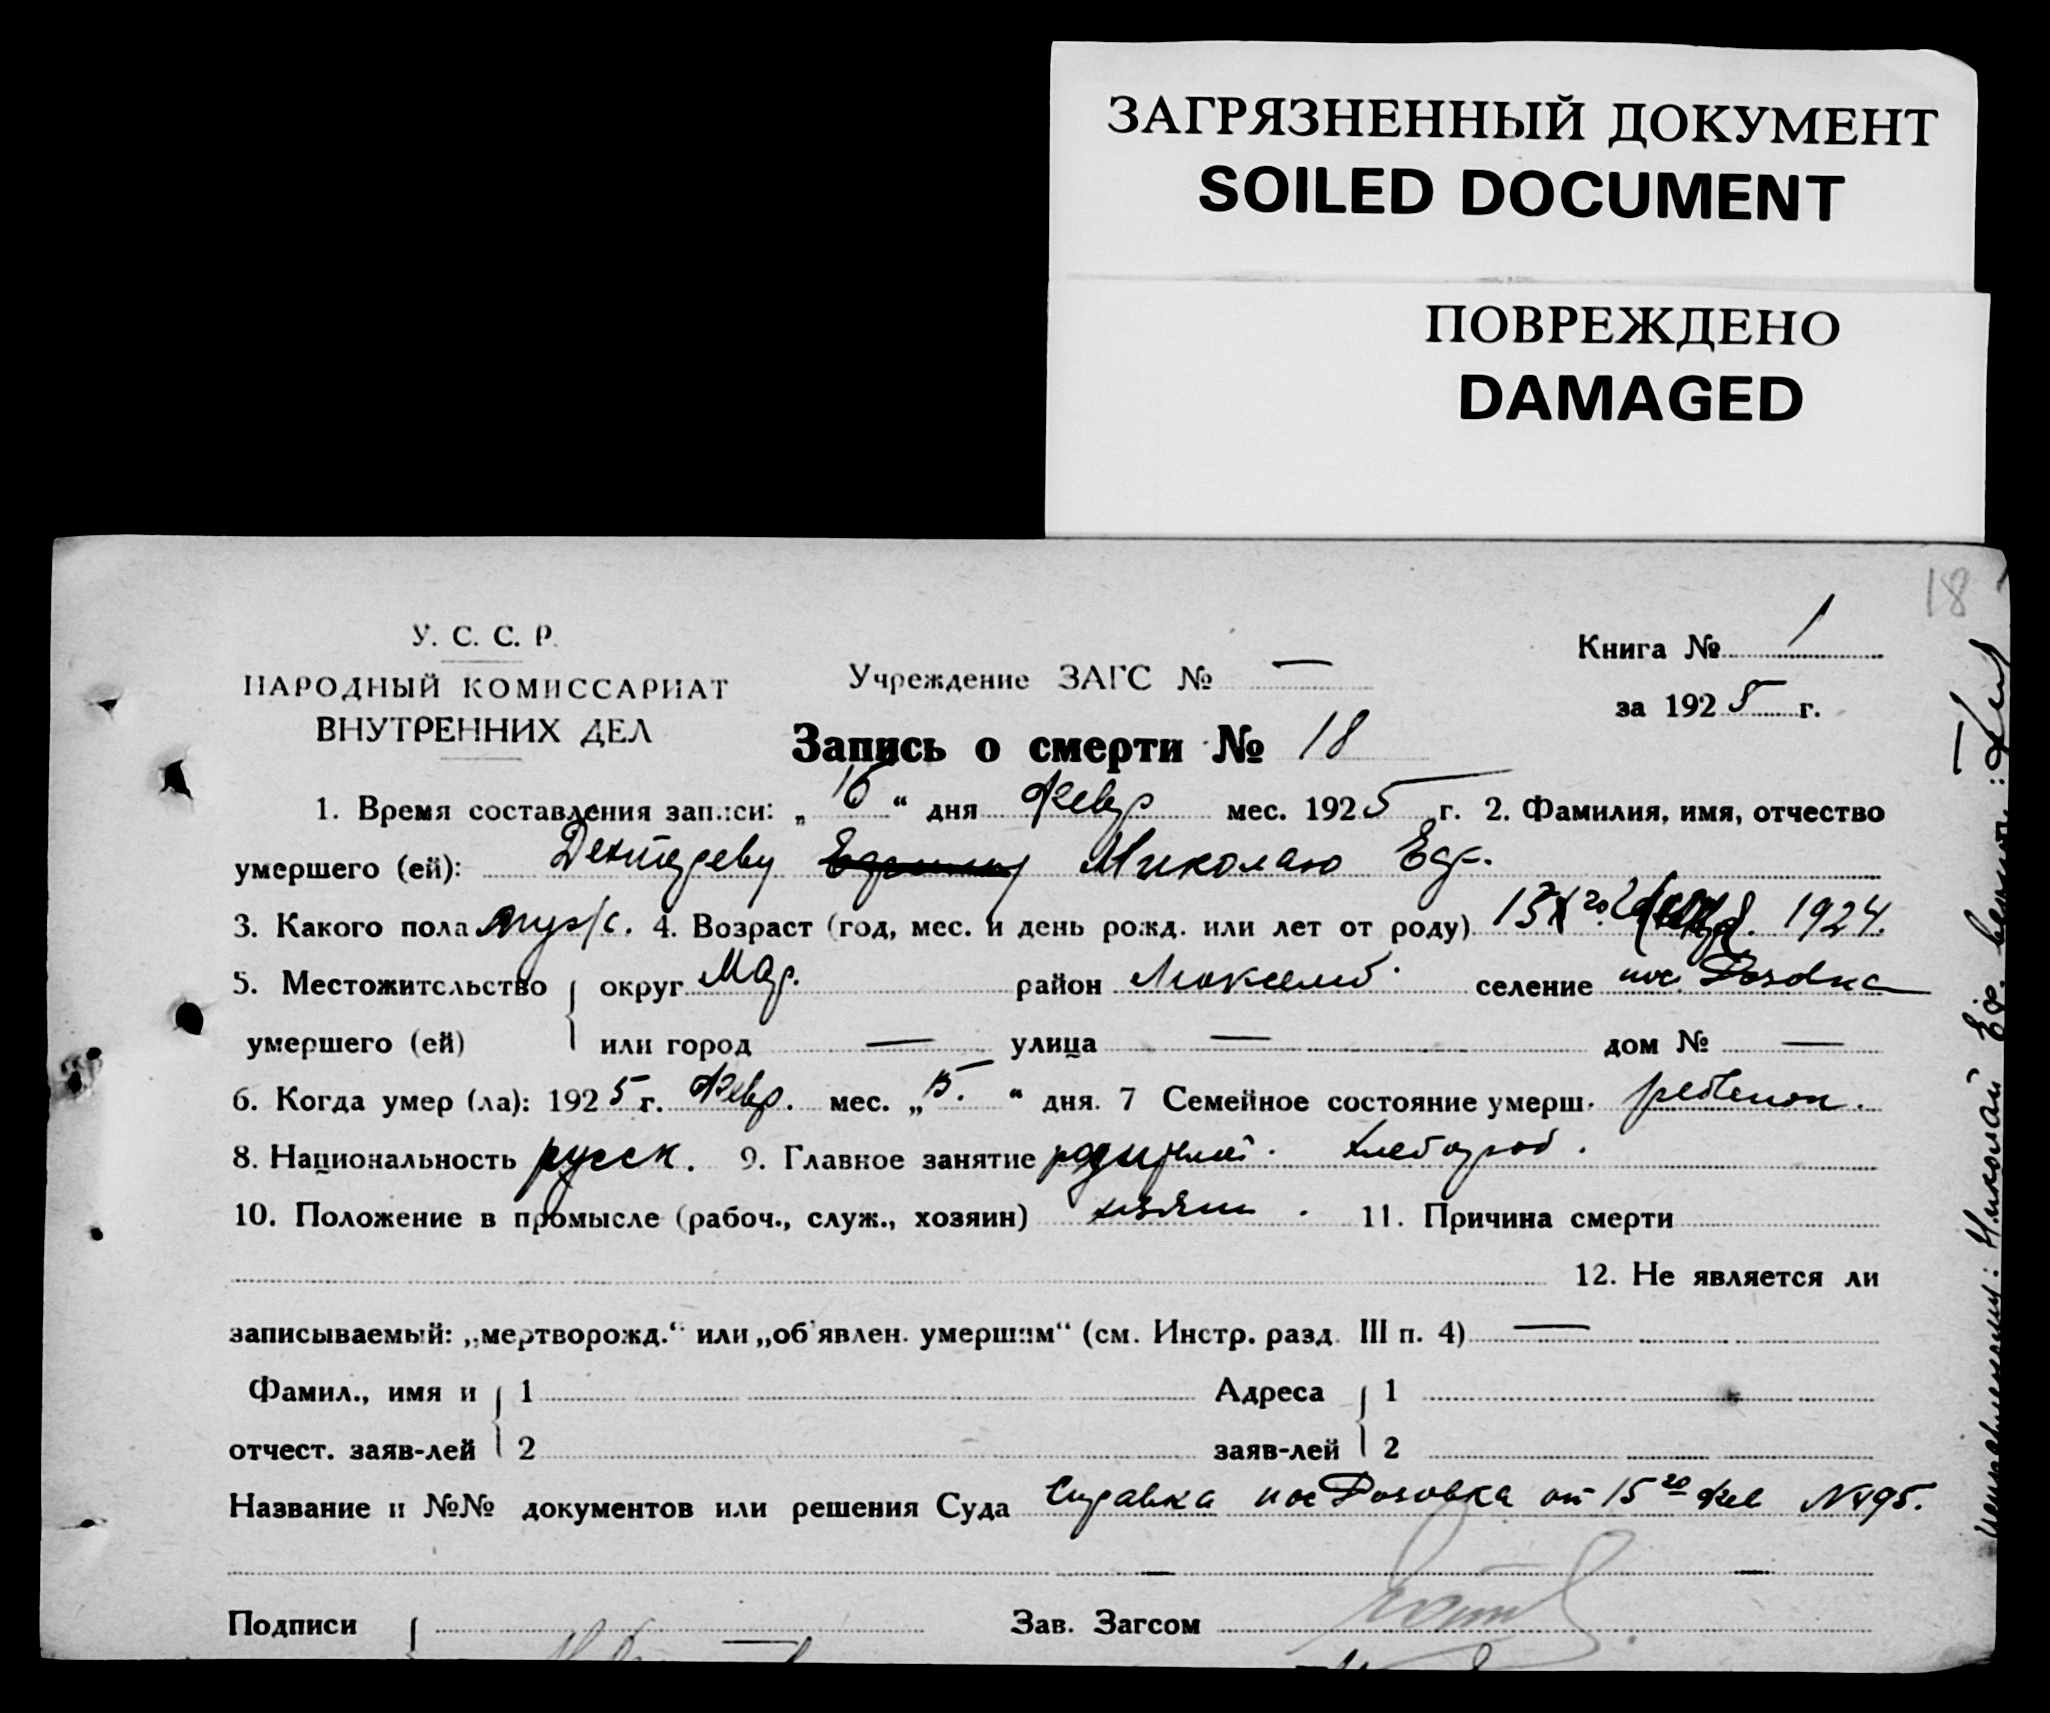 ЗАГРЯЗНЕННЫЙ ДОКУМЕНТ
SOILED DOCUMENT
ПОВРЕЖДЕНО
DAMAGED
18
У. С. С. Р.
НАРОДНЫЙ КОМИССАРИАТ
ВНУТРЕННИХ ДЕЛ
Учреждение ЗАГС № —
Книга № 1
за 1925 г.
Запись о смерти № 18
1. Время составления записи: „16“ дня Февр мес. 1925 г. 2. Фамилия, имя, отчество
умершего (ей): Дехтереву Миколаю Еф.
3. Какого пола муж. 4. Возраст (год, мес. и день рожд. или лет от роду) 1924.
5. Местожительство округ Мар. район селение пос.
умершего (ей) или город — улица — дом № —
6. Когда умер (ла): 1925 г. Февр. мес. „15.“ дня. 7 Семейное состояние умерш. ребенок.
8. Национальность русск. 9. Главное занятие родителей. хлебороб.
10. Положение в промысле (рабоч., служ., хозяин) хозяин. 11. Причина смерти
12. Не является ли
записываемый: „мертворожд.“ или „об'явлен. умершим“ (см. Инстр. разд. III п. 4) —
Фамил., имя и 1 Адреса 1
отчест. заяв-лей 2 заяв-лей 2
Название и №№ документов или решения Суда Справка пос от 15го Фев №195.
Подписи Зав. Загсом
Николай Еф. верить: